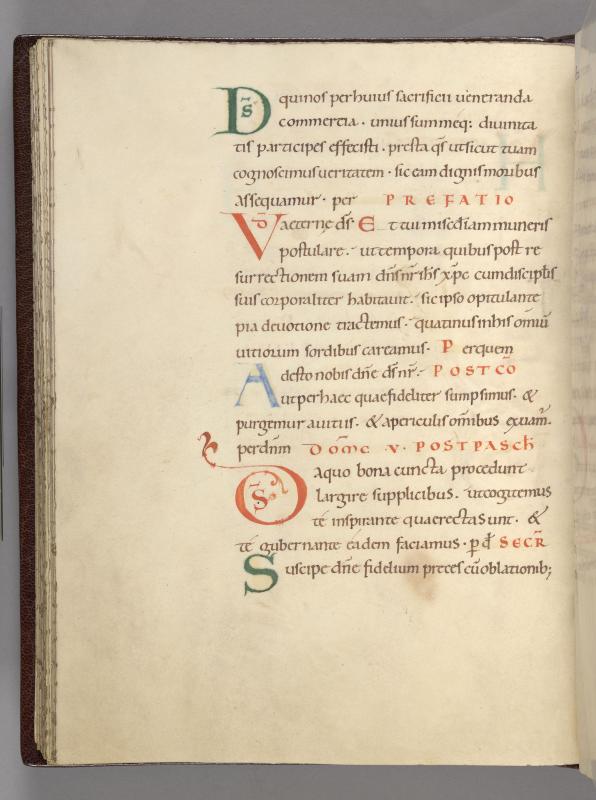 Ds̄ qui nos per huius sacrificii ueneranda
commertia · unius summęq; diuinita
tis participes effecisti · presta q̄s ut sicut tuam
cognoscimus ueritatem · sic eam dignis moribus
assequamur · per PREFATIO
VD̄ aeternę ds̄· Et tui misedīam muneris
postulare · ut tempora quibus post re
surrectionem suam dn̄s nr̄ ih̄s xp̄c cum discipłis
suis corporaliter habitauit · sic ipso opitulante
pia deuotione tractemus · quatinus in his omīū
uitiorum sordibus careamus · Per quem
Adesto nobis dn̄e ds̄ nr̄· POST CŌ
ut per haec quae fideliter sumpsimus · &
purgemur a uitiis · & a periculis om̄ibus exuam̄·
per dn̄m DOM̄C V · POST PASCH̄
Ds̄ a quo bona cuncta procedunt
largire supplicibus · ut cogitemus
te inspirante quae recta sunt · &
te gubernante eadem faciamus · p̄ d̄ SECR̄
Suscipe dn̄e fidelium preces cū oblationib;